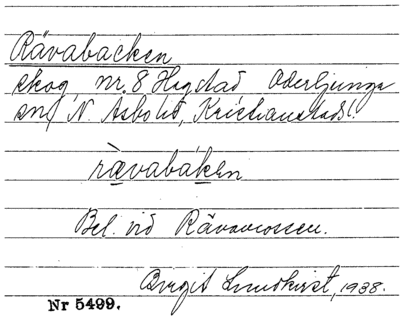 Rävabacken
skog, nr. 8 Hagstad Oderljunga
sn, N. Åsbohd, Kristianstads l.
rävabáken
Bel. vid Rävamossen.
Birgit Lundkvist, 1938.
Nr 5499.